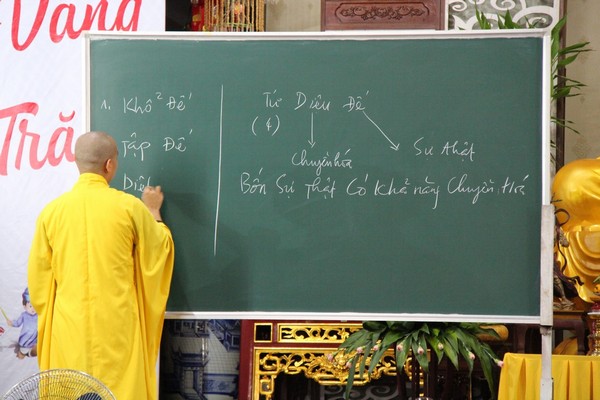 Vàng
Tră
1. Khổ Đế
Tập Đế
Diệ
Tứ Diệu Đế
(4)
Chuyển hóa
Sự thật
Bốn Sự Thật Có Khả năng Chuyển Hoá